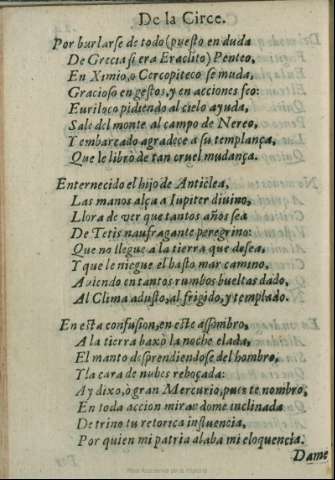 De la Circe.
Por burlarse de todo (puesto en duda
De Grecia si era Eraclito) Penteo,
En Ximio, o Cercopiteco se muda,
Gracioso en gestos, y en acciones feo:
Euriloco pidiendo al cielo ayuda,
Sale del monte al campo de Nereo,
Y embarcado agradece a su templança,
Que le librò de tan cruel mudança.
Enternecido el hijo de Anticlea,
Las manos alça a Iupiter diuino,
Llora de ver que tantos años sea
De Tetis naufragante peregrino:
Que no llegue a la tierra que desea,
Y que le niegue el basto mar camino,
Auiendo en tantos rumbos bueltas dado,
Al Clima adusto, al frigido, y templado.
En esta confusion, en este assombro,
A la tierra baxò la noche elada,
El manto desprendiendose del hombro,
Y la cara de nubes reboçada:
Ay dixo, ò gran Mercurio, pues te nombro,
En toda accion mirandome inclinada
De trino tu retorica influencia,
Por quien mi patria alaba mi eloquencia.
Dame